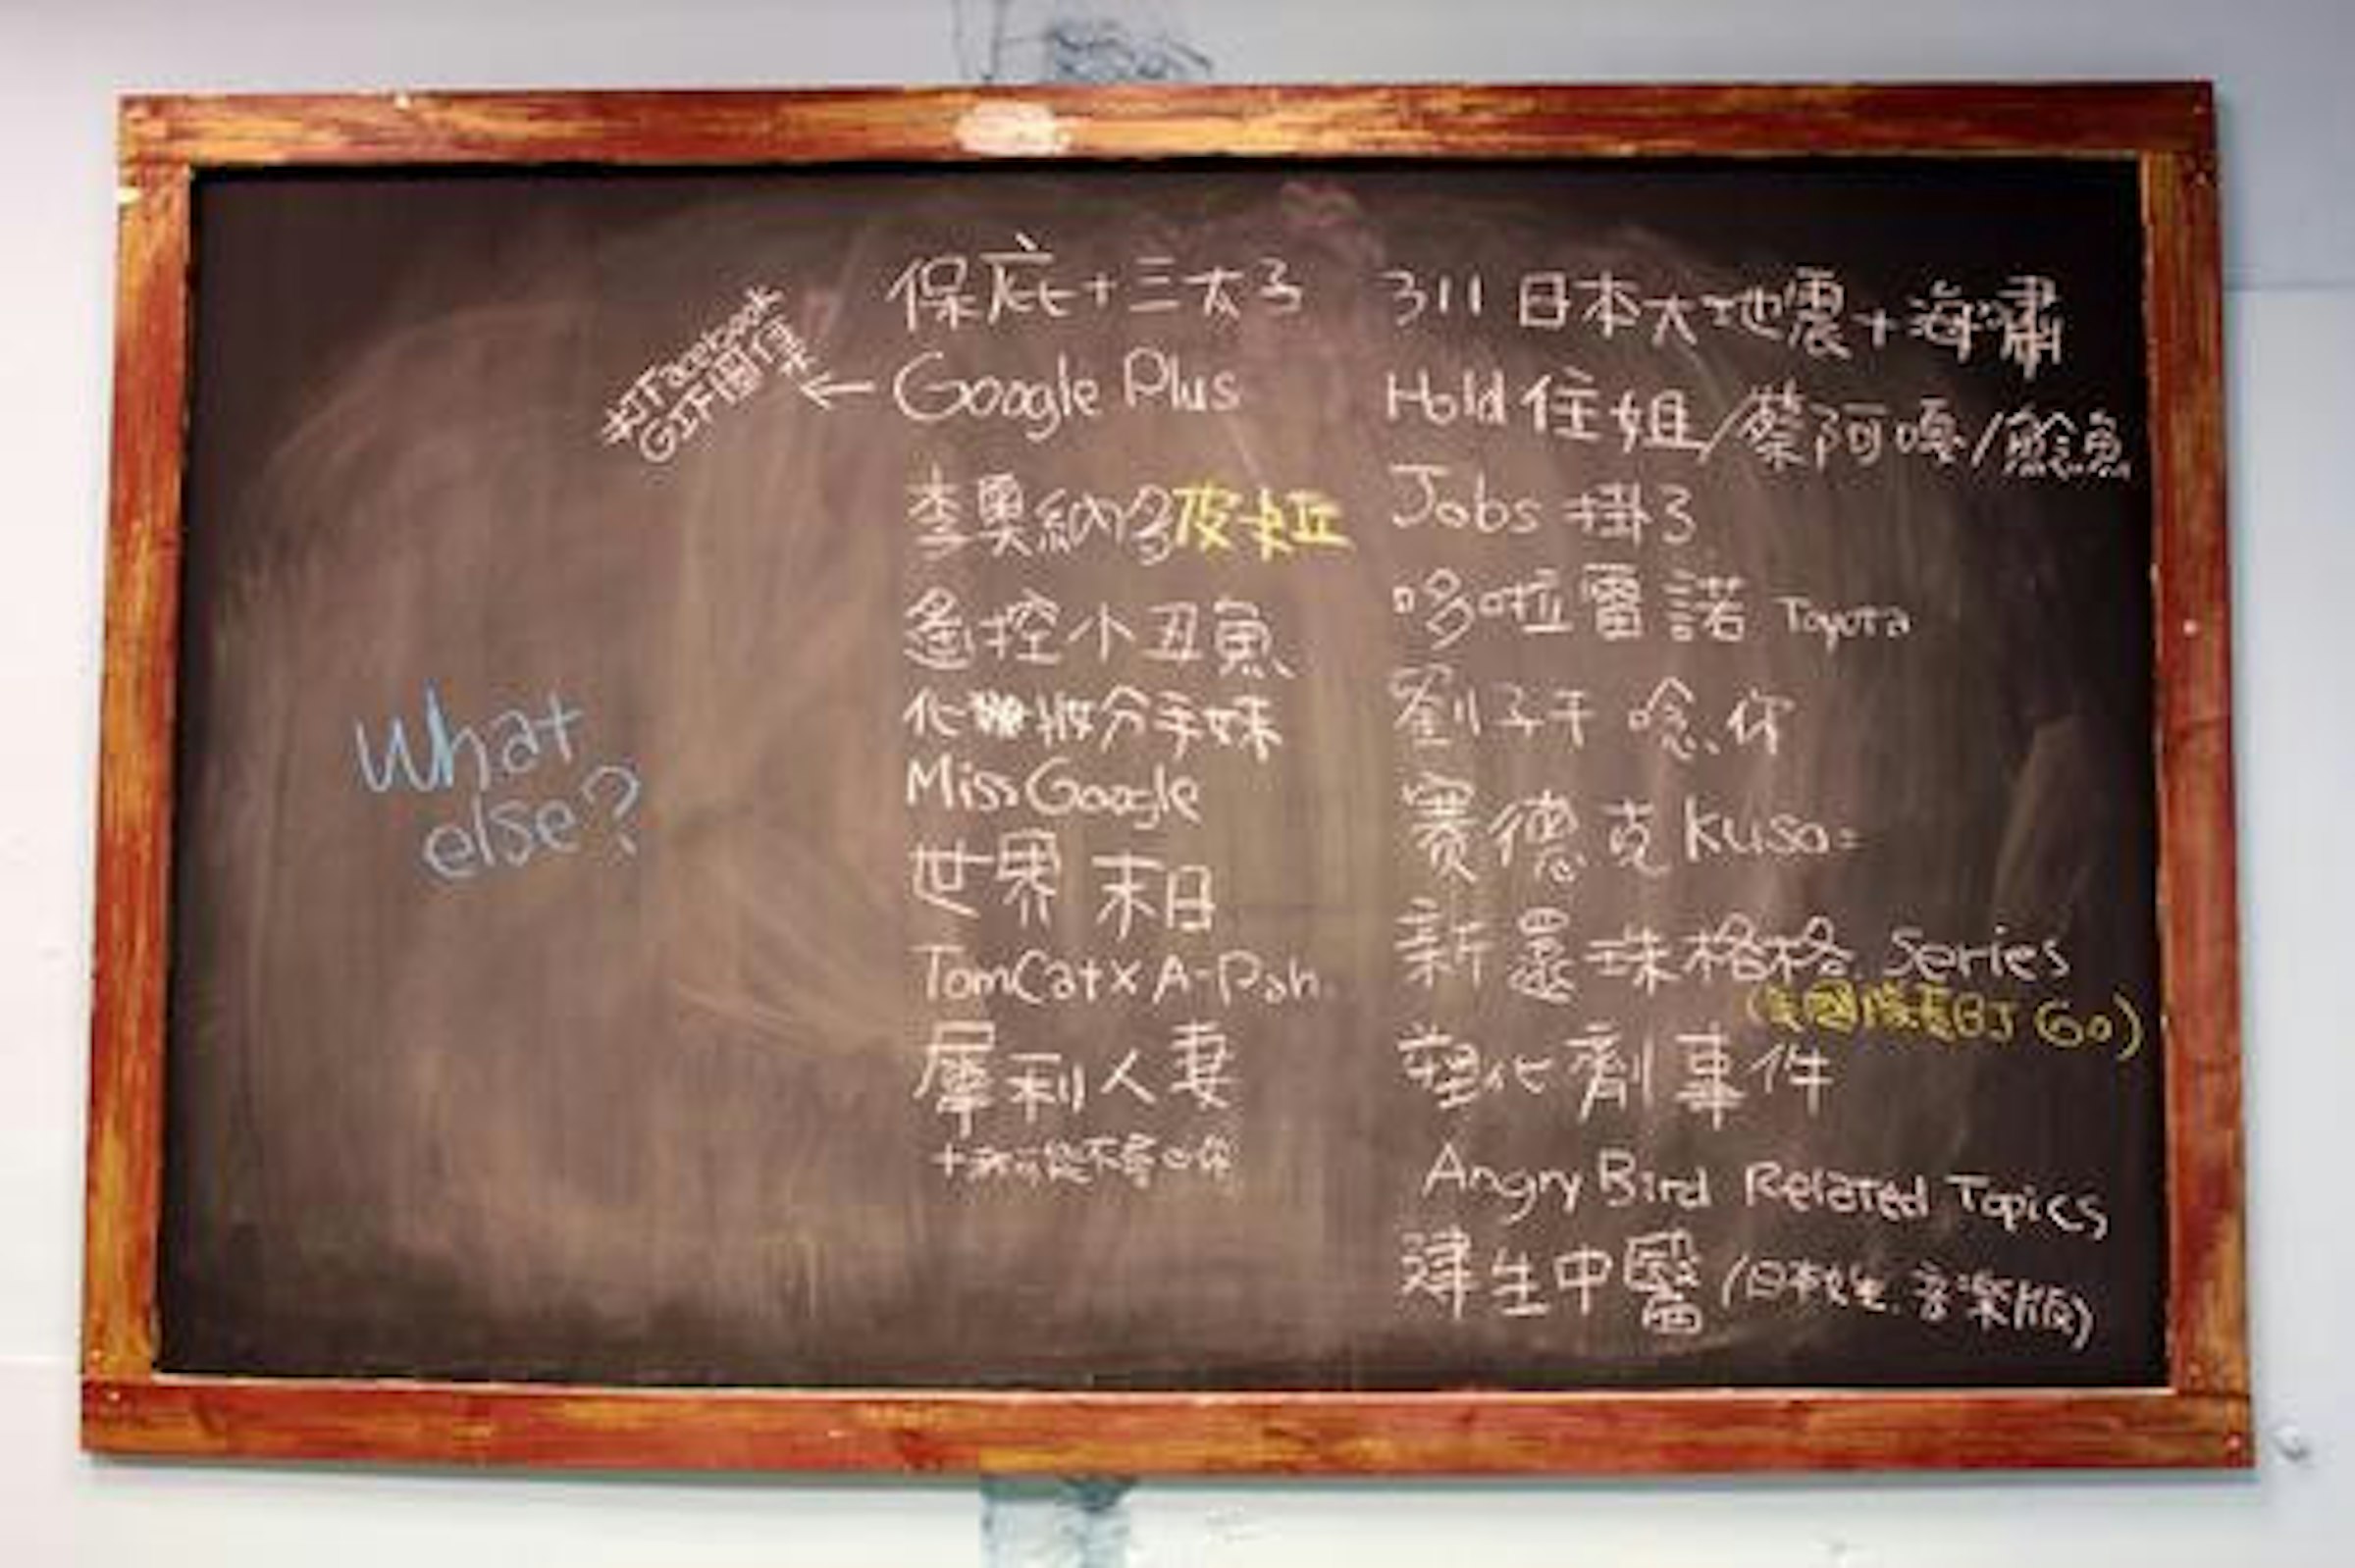 保庇+三太子
打Facebook
GIF圖行
← Google Plus
李奧納多皮卡丘
遙控小丑魚
化妝分手妹
Miss Google
世界末日
TomCat x A-Pah
犀利人妻
What
else?
311 日本大地震+海嘯
Hold住姐/蔡阿嘎/鯰魚
Jobs 掛了
哆啦雷諾 Toyota
劉子千 唸你
賽德克 Kuso
新還珠格格 Series
BJ Go)
塑化劑事件
Angry Bird Related Topics
津生中醫 (日本 音樂版)